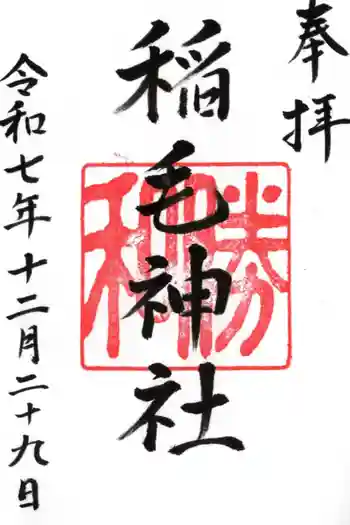 奉拝
稲毛神社
令和七年十二月二十九日